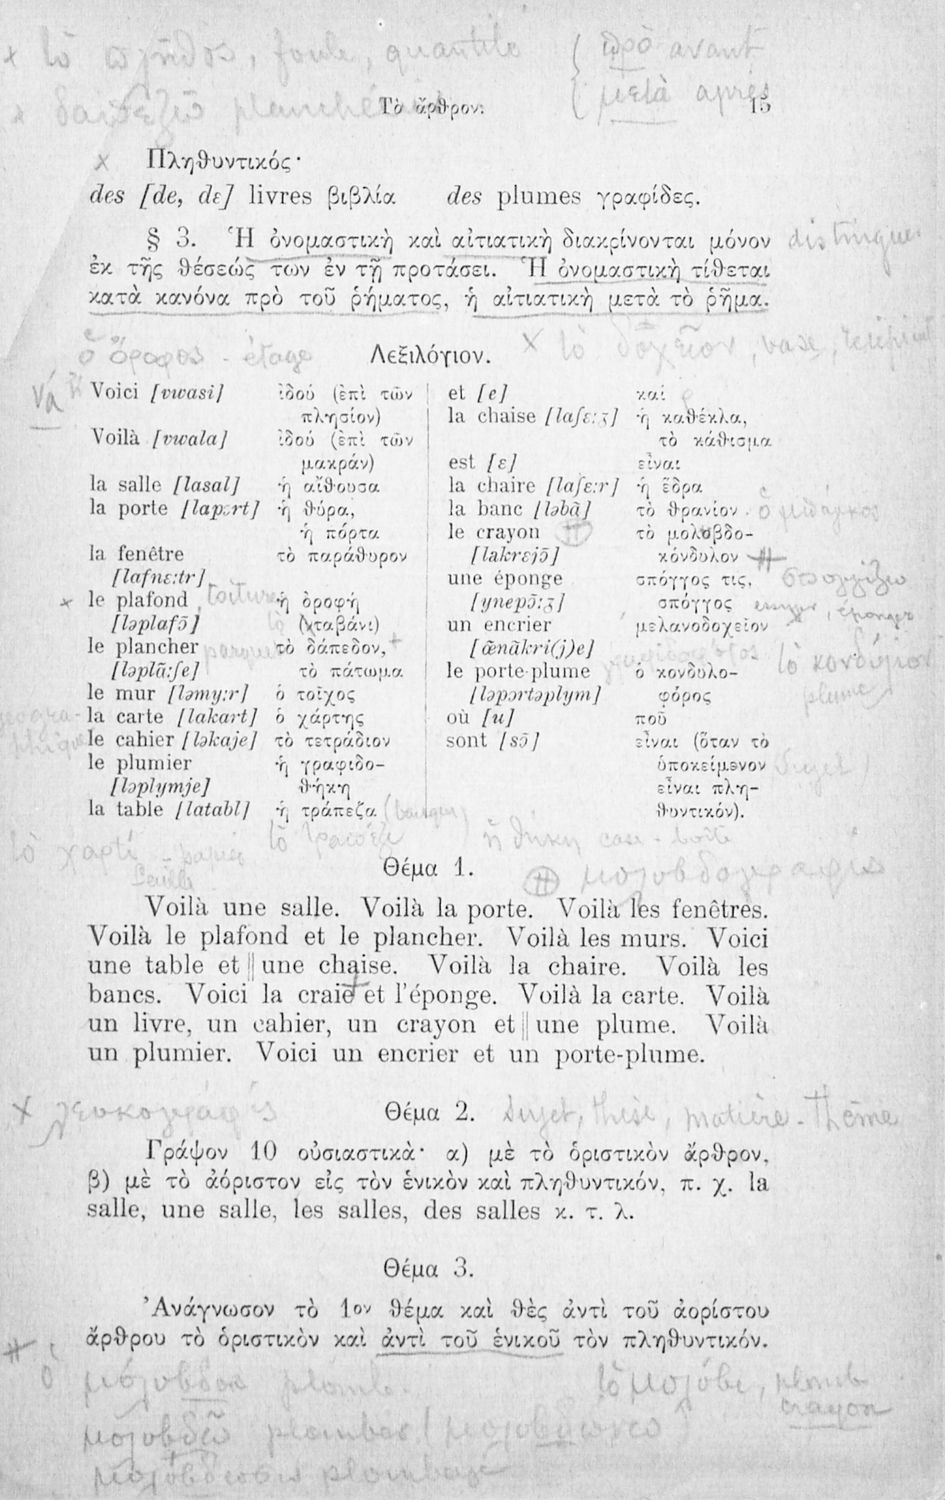 τὸ πλῆθος, foule, quantité { πρὸ avant
μετὰ après
Τὸ ἄρθρον. 15
Πληθυντικός·
des [de, dɛ] livres βιβλία des plumes γραφίδες.
§ 3. Ἡ ὀνομαστικὴ καὶ αἰτιατικὴ διακρίνονται μόνον
ἐκ τῆς θέσεώς των ἐν τῇ προτάσει. Ἡ ὀνομαστικὴ τίθεται
κατὰ κανόνα πρὸ τοῦ ῥήματος, ἡ αἰτιατικὴ μετὰ τὸ ῥῆμα.
ὁ ὄροφος - étage
Λεξιλόγιον.
x τὸ δοχεῖον, vase, récipient
Voici [vwasi] ἰδού (ἐπὶ τῶν
πλησίον)
Voilà [vwala] ἰδού (ἐπὶ τῶν
μακράν)
la salle [lasal] ἡ αἴθουσα
la porte [lapɔrt] ἡ θύρα,
ἡ πόρτα
la fenêtre τὸ παράθυρον
[lafnɛ:tr]
le plafond toiture ἡ ὀροφή
[ləplafɔ̃] (ταβάνι)
le plancher parquet τὸ δάπεδον,
[ləplɑ̃:ʃe] τὸ πάτωμα
le mur [ləmy:r] ὁ τοῖχος
la carte [lakart] ὁ χάρτης
le cahier [ləkaje] τὸ τετράδιον
le plumier ἡ γραφιδο-
[ləplymje] θήκη
la table [latabl] ἡ τράπεζα
et [e] καί
la chaise [laʃɛ:ʒ] ἡ καθέκλα,
τὸ κάθισμα
est [ɛ] εἶναι
la chaire [laʃɛ:r] ἡ ἕδρα
la banc [ləbɑ̃] τὸ θρανίον
le crayon τὸ μολυβδο-
[lakrɛjɔ̃] κόνδυλον
une éponge σπόγγος τις,
[ynepɔ̃:ʒ] σπόγγος
un encrier μελανοδοχεῖον
[œ̃nɑ̃kri(j)e]
le porte-plume ὁ κονδυλο-
[ləpɔrtəplym] φόρος
où [u] ποῦ
sont [sɔ̃] εἶναι (ὅταν τὸ
ὑποκείμενον
εἶναι πλη-
θυντικόν).
τὸ χαρτί
ἡ θήκη case - boîte
Θέμα 1.
Voilà une salle. Voilà la porte. Voilà les fenêtres.
Voilà le plafond et le plancher. Voilà les murs. Voici
une table et || une chaise. Voilà la chaire. Voilà les
bancs. Voici la craie et l'éponge. Voilà la carte. Voilà
un livre, un cahier, un crayon et || une plume. Voilà
un plumier. Voici un encrier et un porte-plume.
Θέμα 2.
sujet, thèse, matière - thème
Γράψον 10 οὐσιαστικὰ· α) μὲ τὸ ὁριστικὸν ἄρθρον,
β) μὲ τὸ ἀόριστον εἰς τὸν ἑνικὸν καὶ πληθυντικόν, π. χ. la
salle, une salle, les salles, des salles κ. τ. λ.
Θέμα 3.
Ἀνάγνωσον τὸ 1ον θέμα καὶ θὲς ἀντὶ τοῦ ἀορίστου
ἄρθρου τὸ ὁριστικὸν καὶ ἀντὶ τοῦ ἑνικοῦ τὸν πληθυντικόν.
ὁ μόλυβδος plomb.
τὸ μολύβι, plomb
crayon